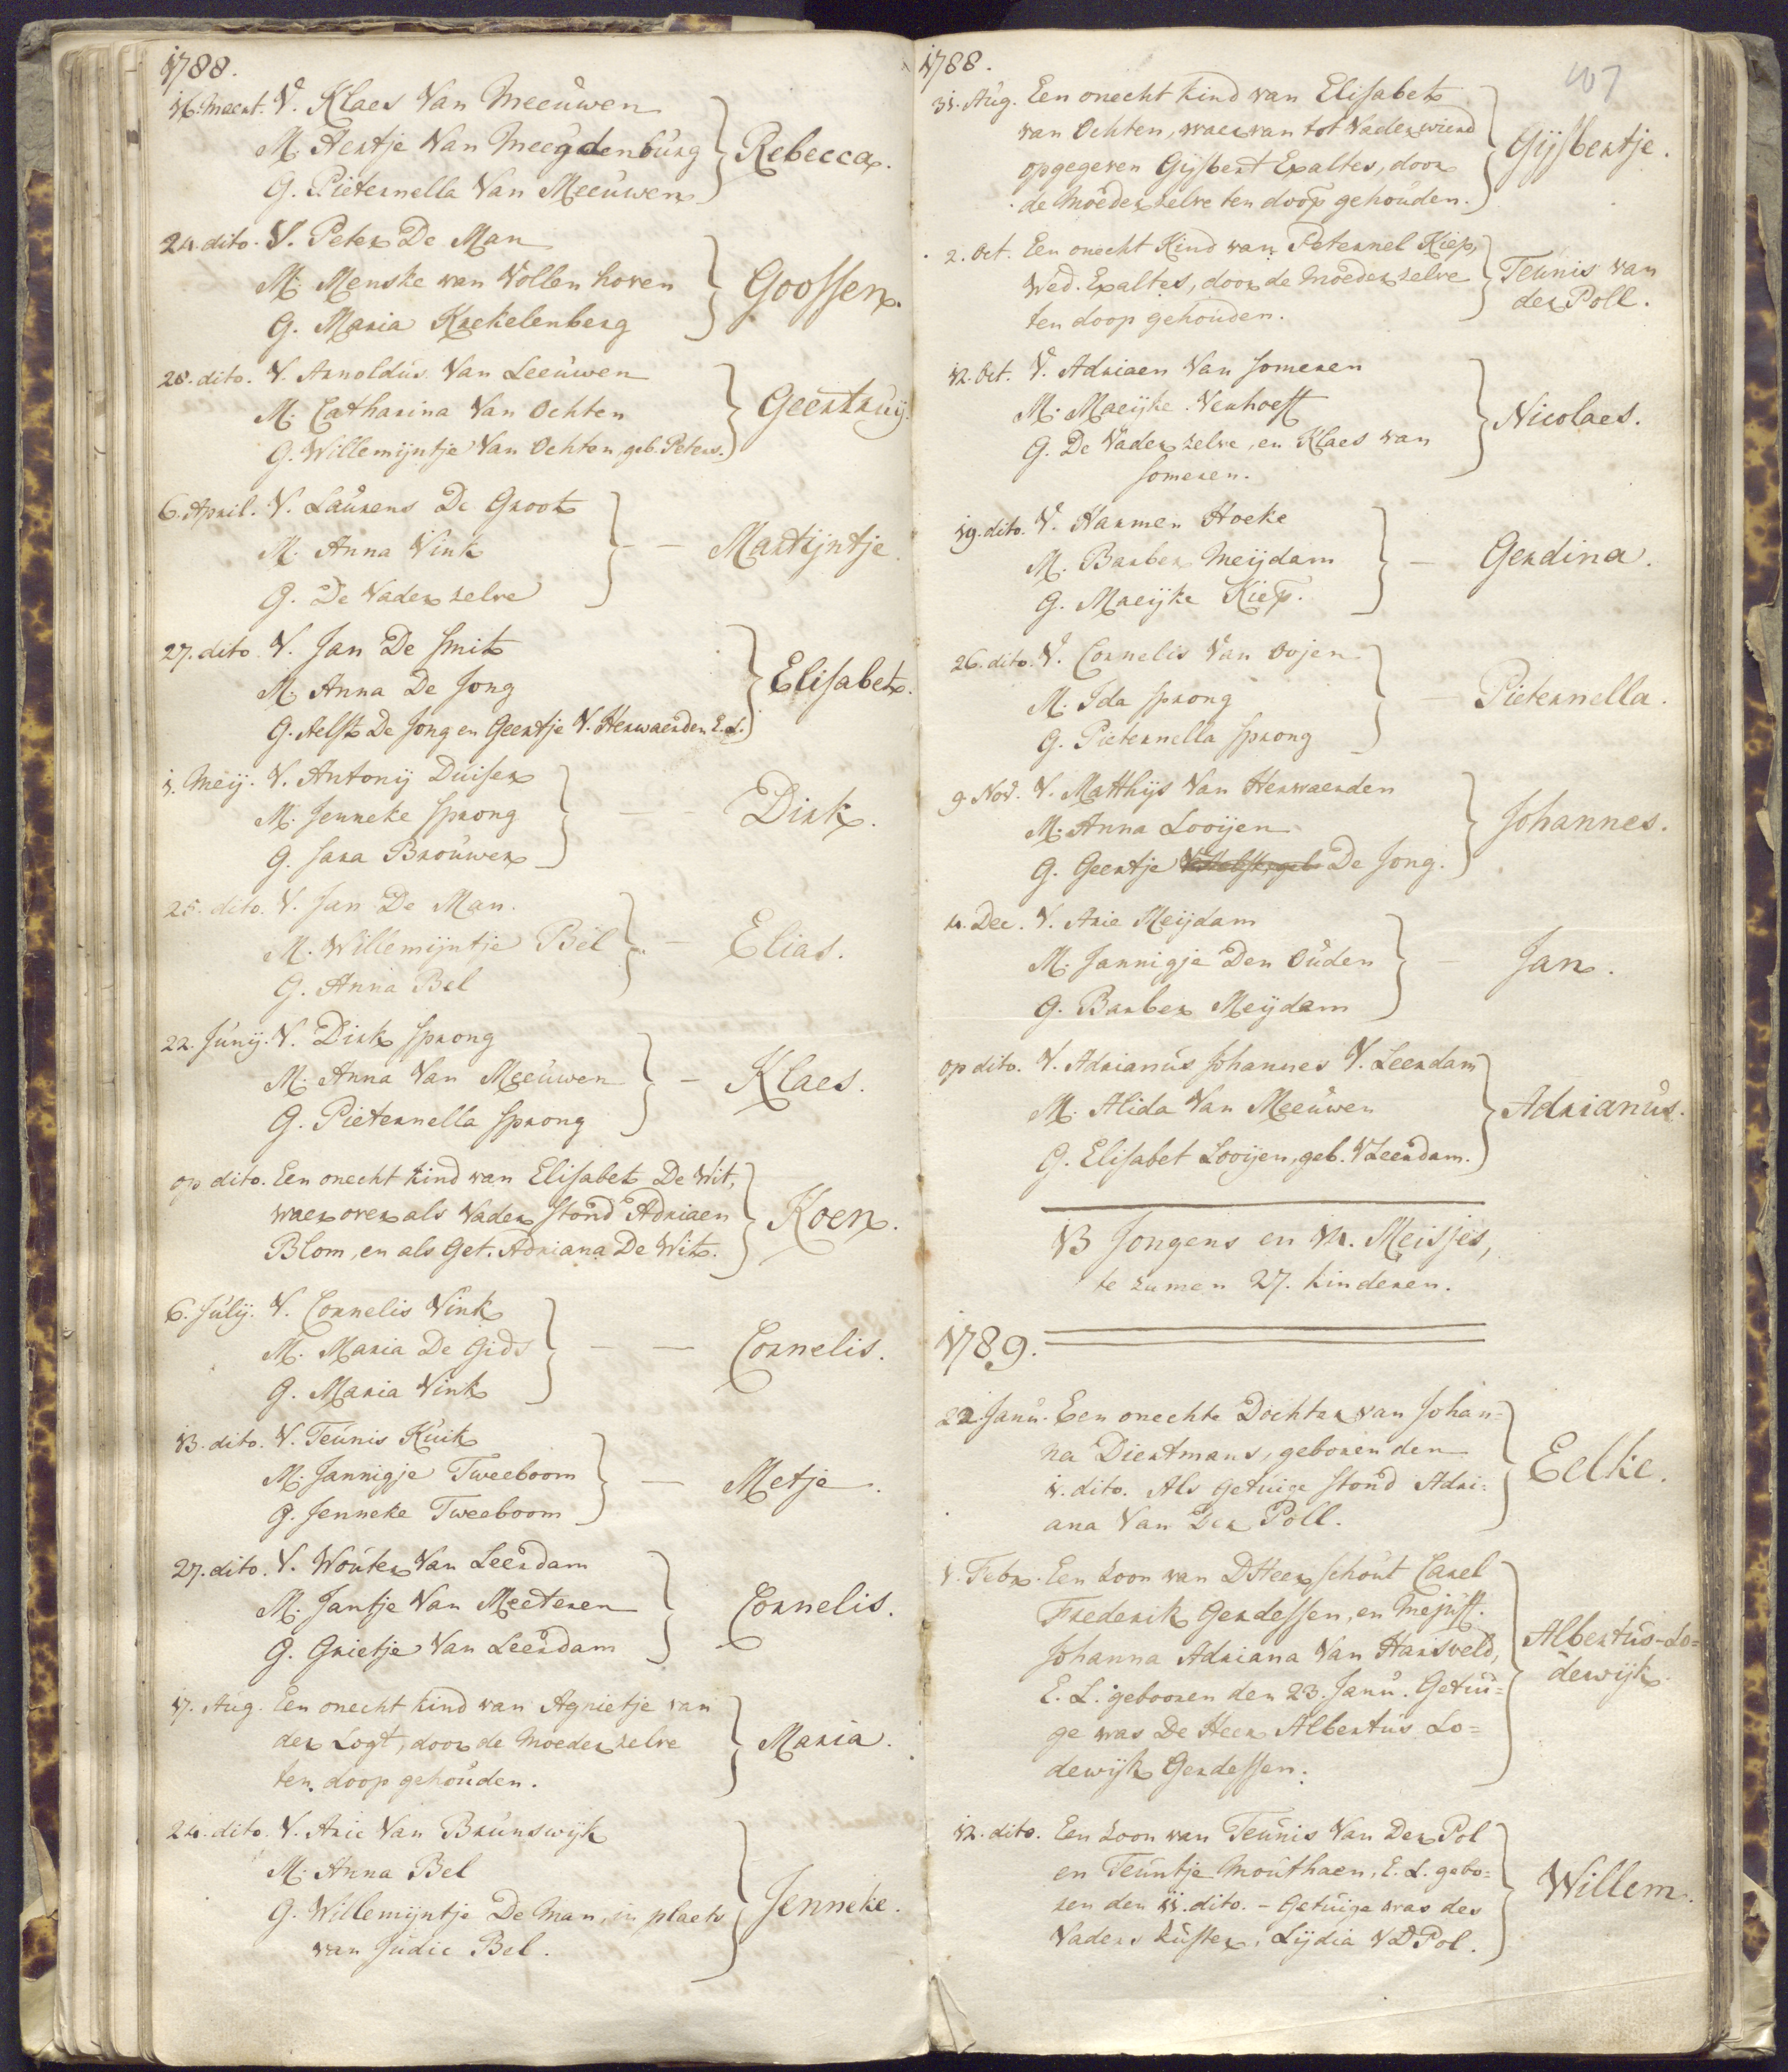 1788.
16. Maert. V. Klaes Van Meeuwen
M. Hertje Van Meegdenburg
G. Pieternella Van Meeuwen
Rebecca.
24. dito. V. Peter De Man
M. Menske van Vollenhoven
G. Maria Krekelenberg
Goossen.
28. dito. V. Arnoldus Van Leeuwen
M. Catharina Van Ochten
G. Willemijntje Van Ochten, geb. Peters.
Geertruij.
6. April. V. Laurens De Groot
M. Anna Vink
G. De Vader zelve
Martijntje.
27. dito V. Jan De Smit
M. Anna De Jong
G. Aelst De Jong en Geertje V. Herwaerden E.L.
Elisabet.
1. Meij. V. Antonij Duiser
M. Jenneke Sprong
G. Sara Brouwer
Dirk.
25. dito. V. Jan De Man.
M. Willemijntje Bel
G. Anna Bel
Elias.
22. Junij. V. Dirk Sprong
M. Anna Van Meeuwen
G. Pieternella Sprong
Klaes.
op dito. Een onecht kind van Elisabet De Wit,
waer over als Vader stond Adriaen
Blom, en als Get. Adriana De Wit.
Koen.
6. Julij. V. Cornelis Vink
M. Maria De Gids
G. Maria Vink
Cornelis.
13. dito. V. Teunis Kuik
M. Jannigje Tweeboom
G. Jenneke Tweeboom
Metje.
27. dito. V. Wouter Van Leerdam
M. Jantje Van Meeteren
G. Grietje Van Leerdam
Cornelis.
17. Aug. Een onecht kind van Agnietje van
der Logt, door de Moeder zelve
ten doop gehouden.
Maria.
24. dito. V. Arie Van Brunswijk
M. Anna Bel
G. Willemijntje De Man, in plaets
van Judic Bel.
Jenneke.
1788.
107
31. Aug. Een onecht kind van Elisabet
van Ochten, waer van tot Vader wierd
opgegeven Gijsbert Expaltes, door
de Moeder zelve ten doop gehouden.
Gijsbertje.
2. Oct. Een onecht Kind van Peternel Kiep,
Wed. Expaltes, door de Moeder zelve
ten doop gehouden.
Teunis van
der Poll.
12. Oct. V. Adriaen Van Someren
M. Maeijke Verhoeff
G. De Vader zelve, en Klaes van
Someren.
Nicolaes.
19. dito. V. Harmen Hoeke
M. Barber Meijdam
G. Maeijke Kiep.
Gerdina.
26. dito. V. Cornelis Van Oojen
M. Ida Sprong
G. Pieternella Sprong
Pieternella.
9. Nov. V. Matthijs Van Herwaerden
M. Anna Looijen
G. Geertje De Jong.
Johannes.
14. Dec. V. Arie Meijdam
M. Jannigje Den Ouden
G. Barber Meijdam
Jan.
op dito. V. Adrianus Johannes V. Leerdam
M. Alida Van Meeuwen
G. Elisabet Looijen, geb. V Leerdam.
Adrianus.
13 Jongens en 14. Meisjes,
te zamen 27. kinderen.
1789.
22 Janu. Een onechte Dochter van Johan=
na Diertmans, geboren den
1. dito. Als getuige stond Adri=
ana Van Der Poll.
Eelke.
1. Febr. Een Zoon van DHeer Schout Carel
Frederik Gerdessen, en Mejuff.
Johanna Adriana Van Harsveld,
E. L. gebooren den 23. Janu. Getui=
ge was De Heer Albertus Lo=
dewijk Gerdessen.
Albertus-Lo=
dewijk.
12. dito. Een Zoon van Teunis Van Der Pol
en Teuntje Mouthaen, E. L. gebo=
ren den 11. dito. - Getuige was des
Vaders Zuster, Lijdia V D Pol.
Willem.